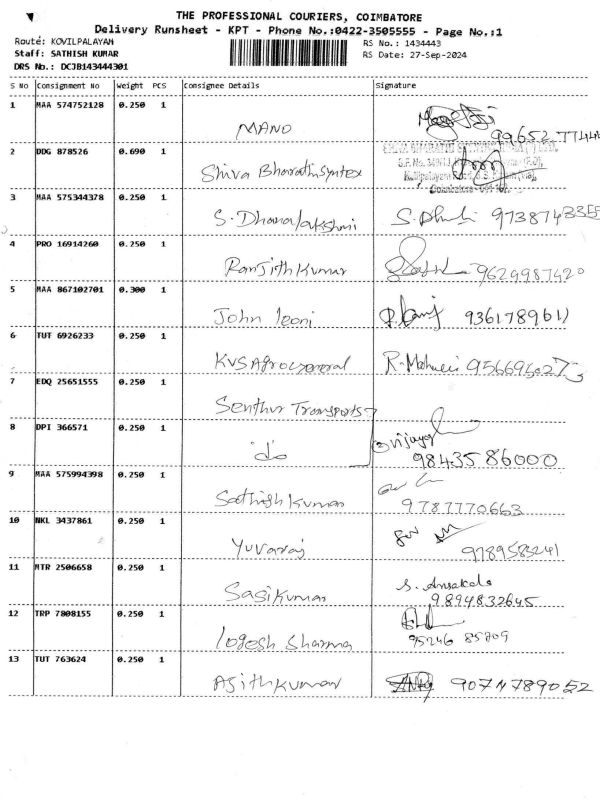 THE PROFESSIONAL COURIERS, COIMBATORE
Delivery Runsheet - KPT - Phone No.:0422-3505555 - Page No.:1
Route: KOVILPALAYAM
RS No.: 1434443
Staff: SATHISH KUMAR
RS Date: 27-Sep-2024
DRS No.: DCJB143444301
S No Consignment No Weight PCS Consignee Details Signature
1 MAA 574752128 0.250 1
MANO 99652 77444
2 DDG 878526 0.690 1
Shiva Bharathi Syntex
3 MAA 575344378 0.250 1
S. Dhanalakshmi 9738743355
4 PRO 16914260 0.250 1
Ranjith Kumar 9629987420
5 MAA 867102701 0.300 1
John leoni 9361789611
6 TUT 6926233 0.250 1
KVS Agro general 9566950273
7 EDQ 25651555 0.250 1
Senthur Transports
8 DPI 366571 0.250 1
do
9843586000
9 MAA 575994398 0.250 1
Sathish Kumar 9787770663
10 NKL 3437861 0.250 1
Yuvaraj 9789583241
11 MTR 2506658 0.250 1
Sasikumar 9894832645
12 TRP 7808155 0.250 1
logesh sharma 95246 85209
13 TUT 763624 0.250 1
Ajith Kumar